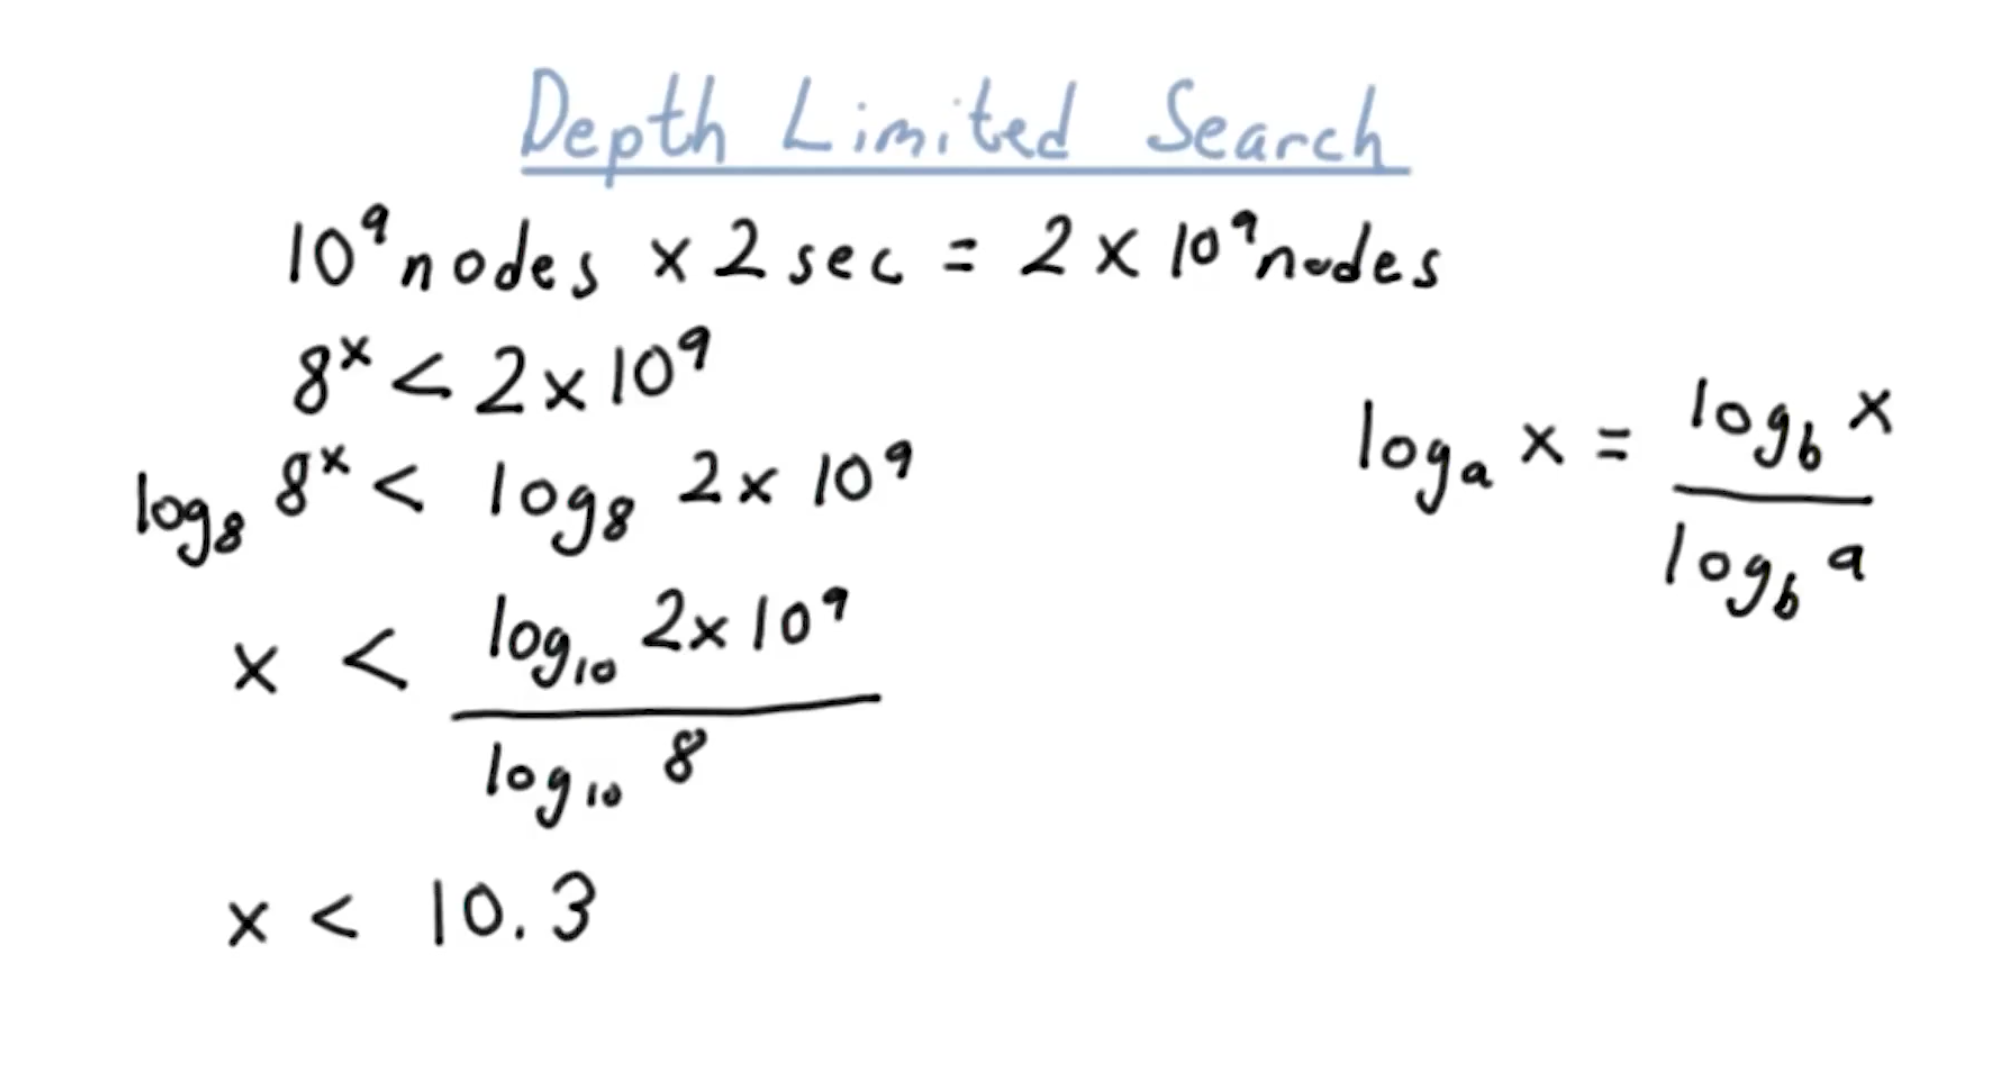 Depth Limited Search
10⁹ nodes x 2 sec = 2 x 10⁹ nodes
8ˣ < 2 x 10⁹
log₈ 8ˣ < log₈ 2 x 10⁹
x < log₁₀ 2 x 10⁹ / log₁₀ 8
x < 10.3
logₐ x = log_b x / log_b a